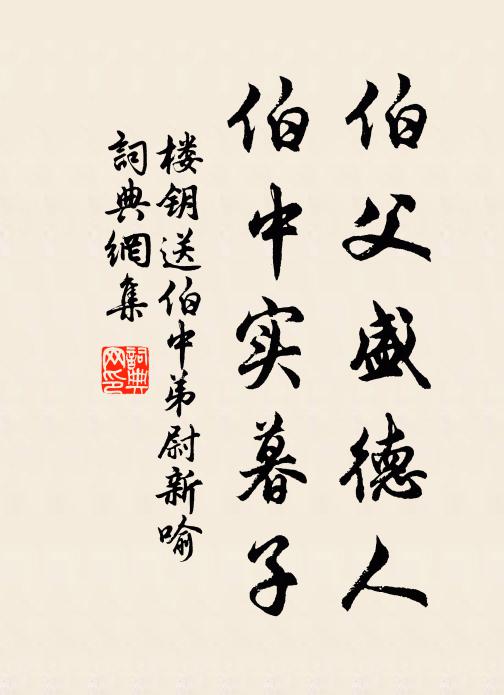 伯父盛德人
伯中实暮子
楼钥送伯中弟尉新喻
詞典網集
詞典网印